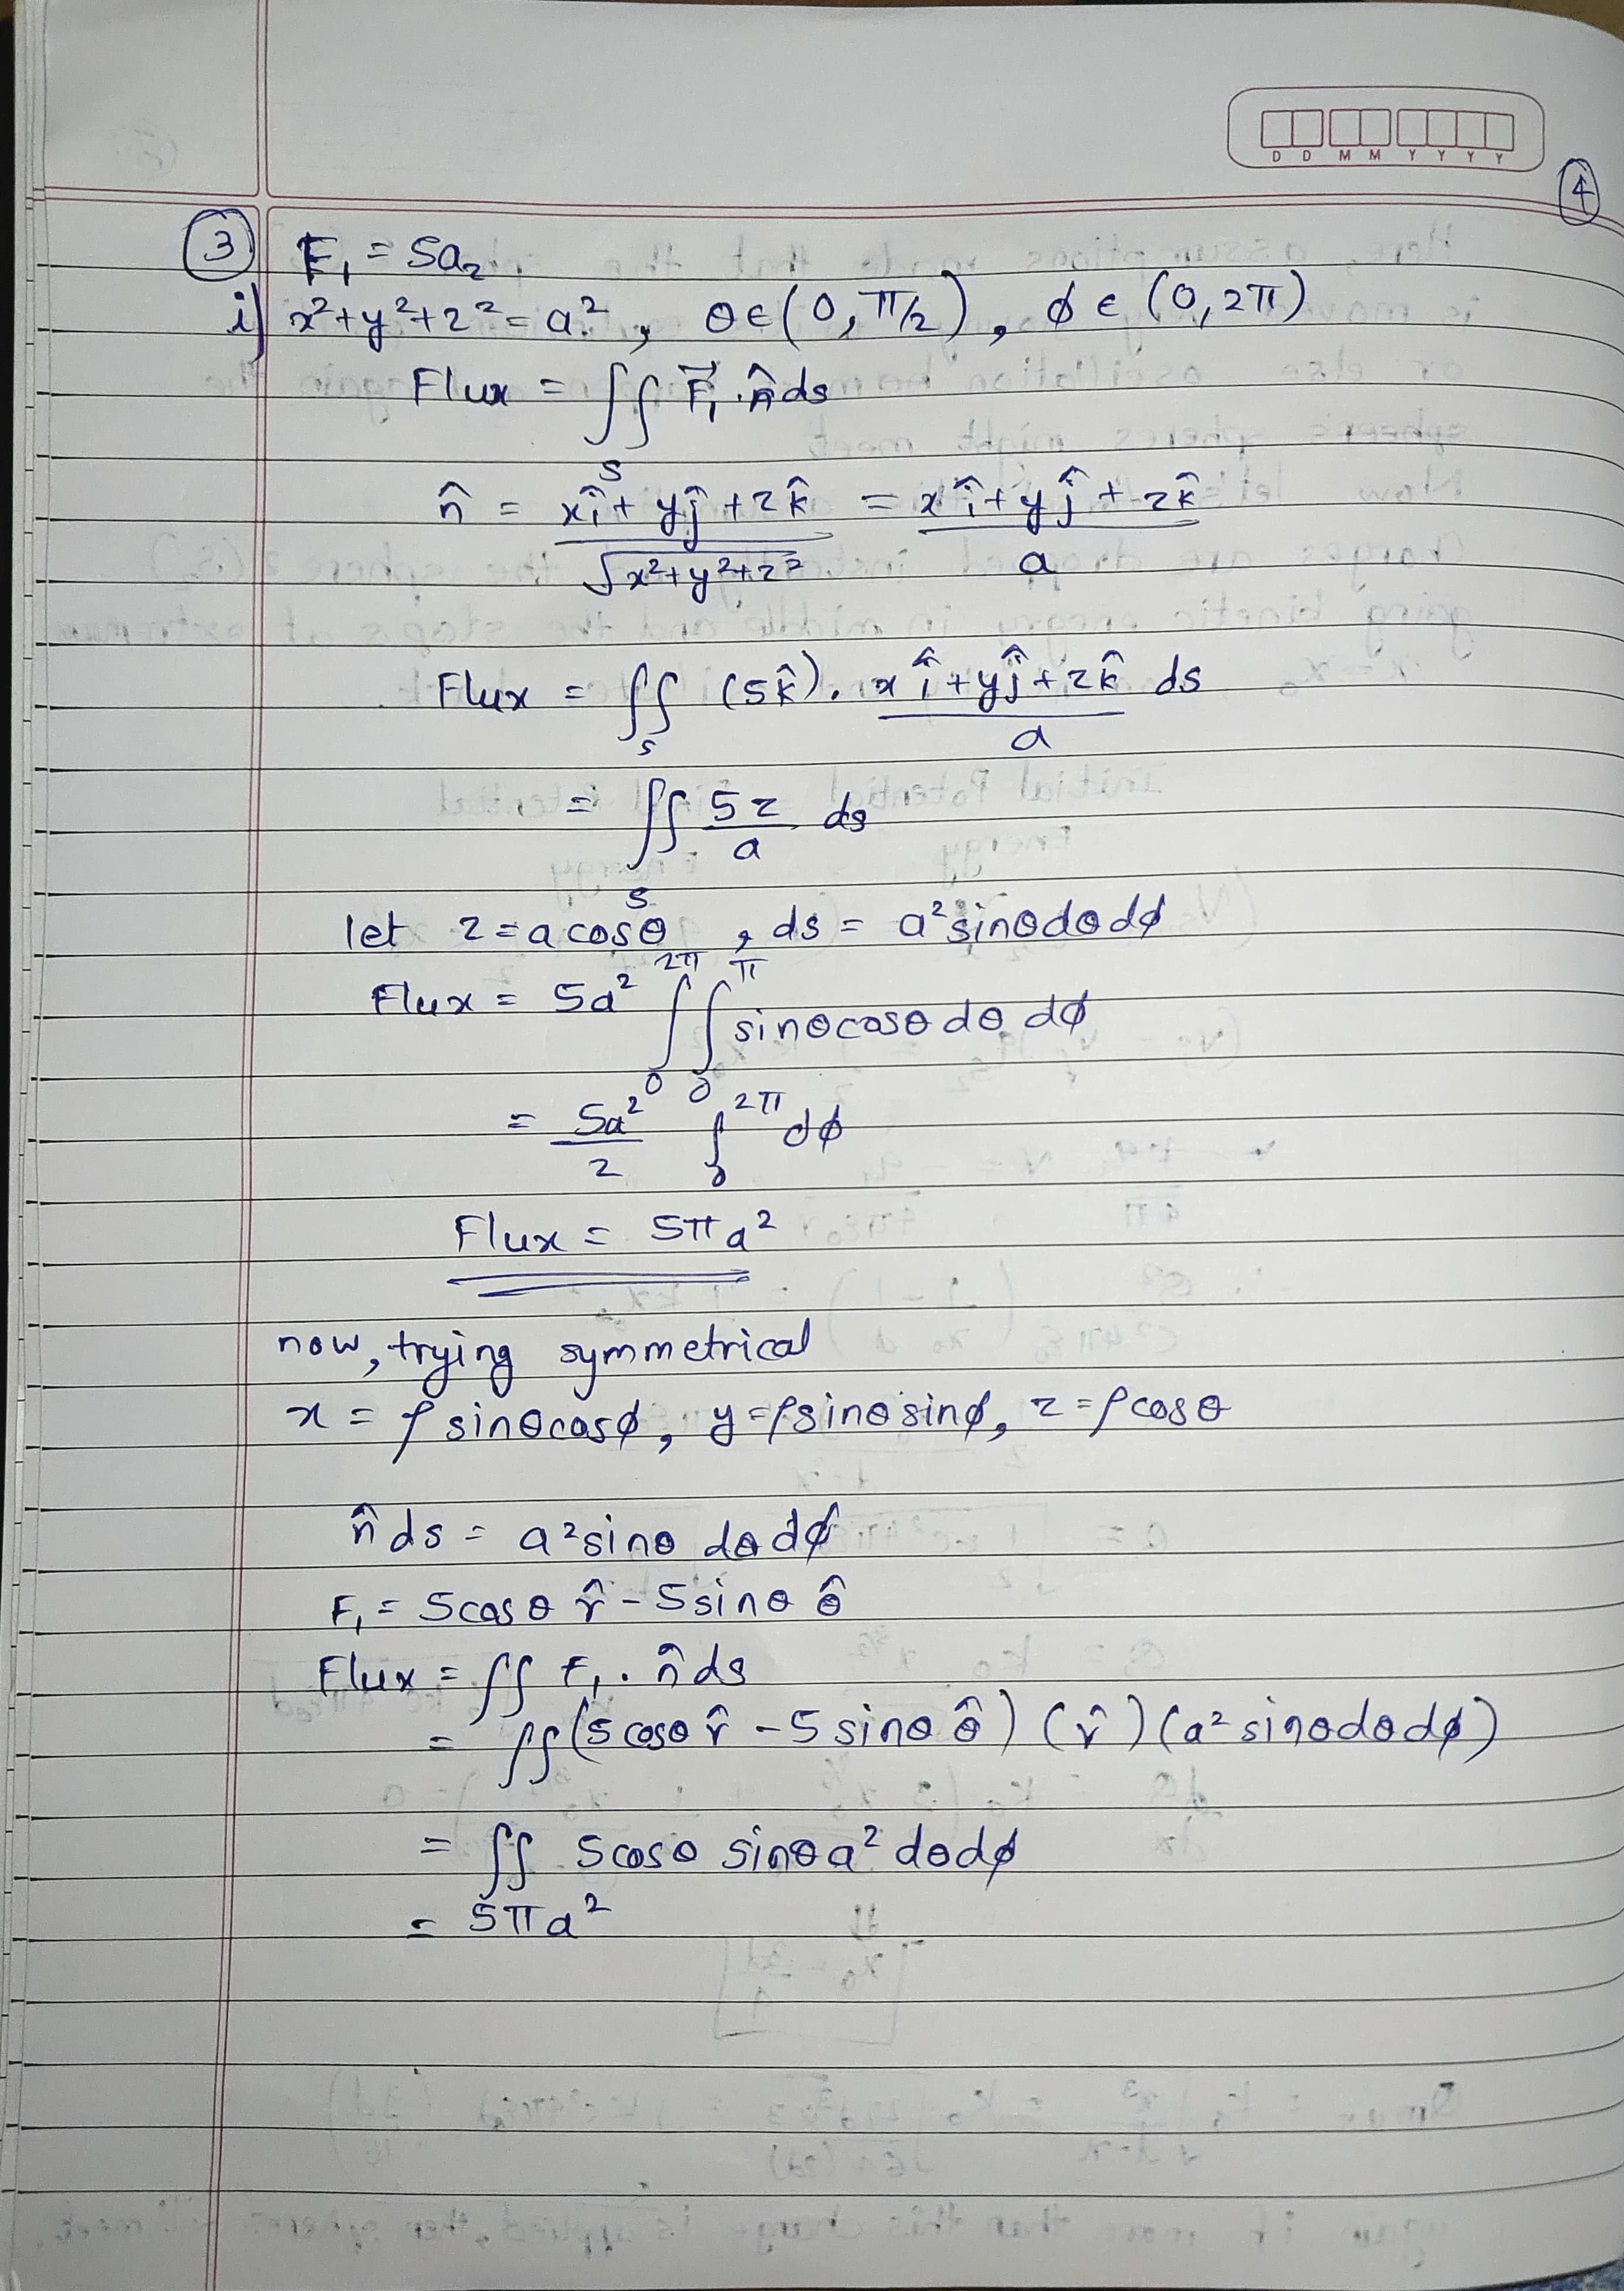 D D M M Y Y Y Y
4
3 F₁ = 5a₂
i) x²+y²+z² = a² , θ ∈ (0, π/2) , ϕ ∈ (0, 2π)
Flux = ∬_S F⃗₁ . n̂ ds
n̂ = (xî + yĵ + zk̂)/√(x²+y²+z²) = (xî + yĵ + zk̂)/a
Flux = ∬_S (5k̂) . (xî + yĵ + zk̂)/a ds
= ∬_S 5z/a ds
let z = a cosθ , ds = a² sinθ dθ dϕ
Flux = 5a² ∫₀^2π ∫₀^π sinθ cosθ dθ dϕ
= 5a²/2 ∫₀^2π dϕ
Flux = 5πa²
now, trying symmetrical
x = ρ sinθ cosϕ, y = ρ sinθ sinϕ, z = ρ cosθ
n̂ ds = a² sinθ dθ dϕ
F₁ = 5cosθ r̂ - 5sinθ θ̂
Flux = ∬ F₁ . n̂ ds
= ∬ (5cosθ r̂ - 5 sinθ θ̂) (r̂) (a² sinθ dθ dϕ)
= ∬ 5cosθ sinθ a² dθ dϕ
= 5πa²